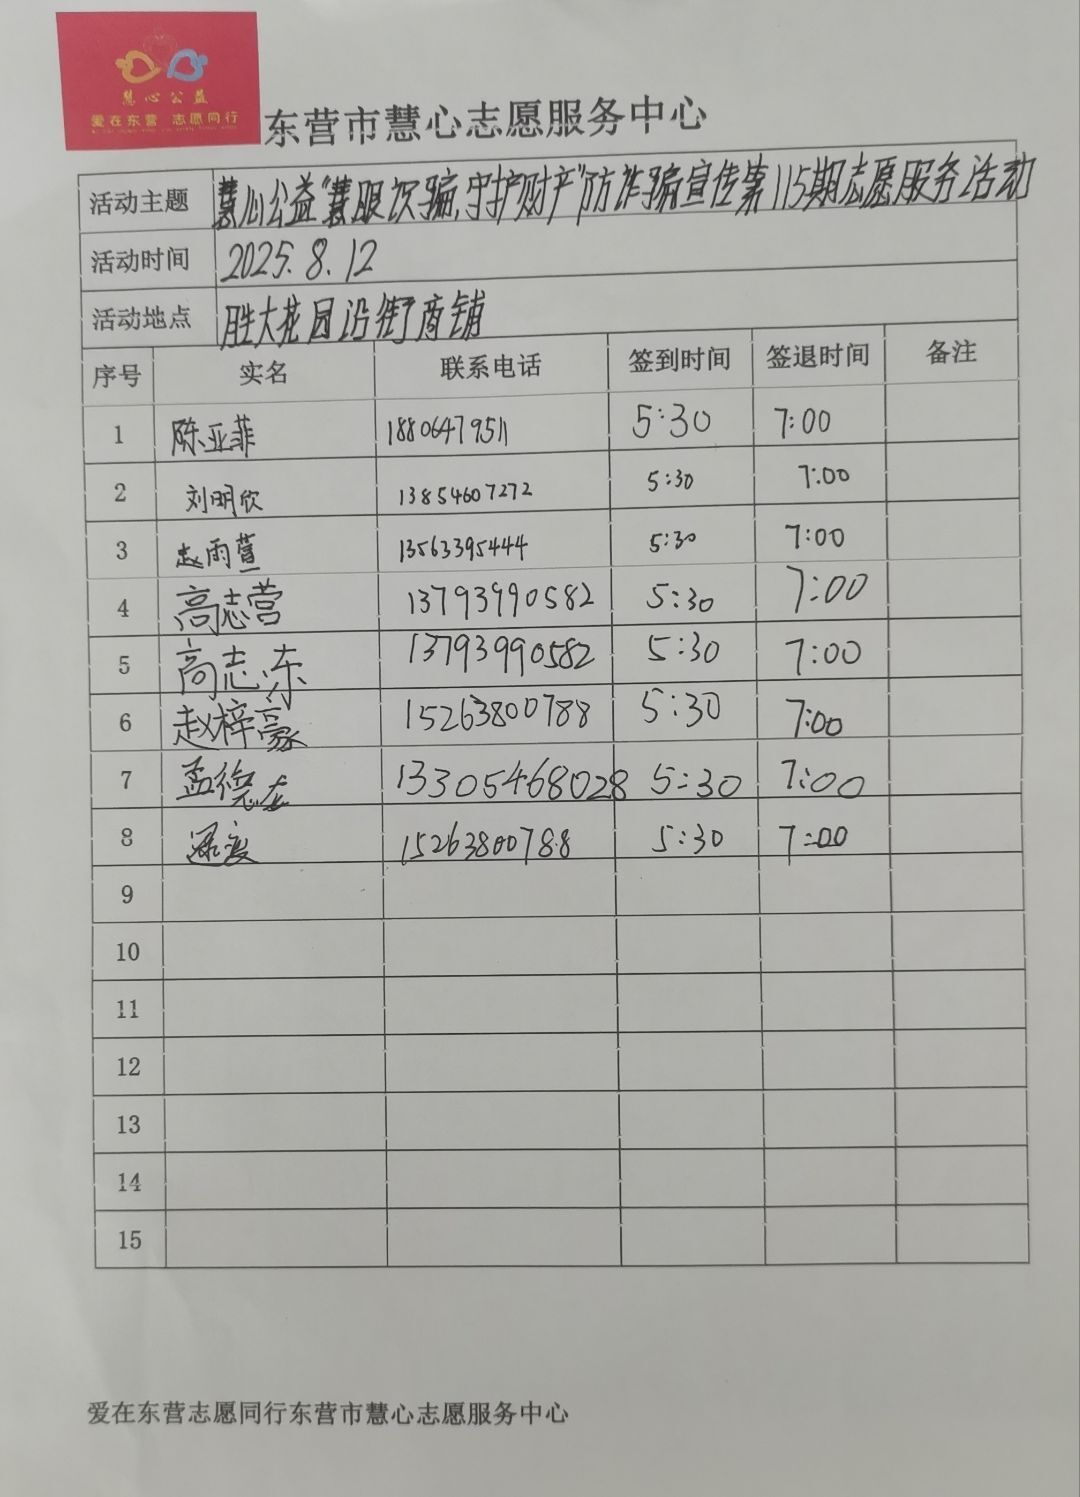 慧心公益
爱在东营 志愿同行
东营市慧心志愿服务中心
活动主题 慧心公益"慧眼识骗,守护财产"防诈骗宣传第115期志愿服务活动
活动时间 2025.8.12
活动地点 胜大花园沿街商铺
序号 实名 联系电话 签到时间 签退时间 备注
1 陈亚菲 18806479511 5:30 7:00
2 刘明欣 13854607272 5:30 7:00
3 赵雨萱 13563395444 5:30 7:00
4 高志营 13793990582 5:30 7:00
5 高志东 13793990582 5:30 7:00
6 赵梓豪 15263800788 5:30 7:00
7 孟德志 13305468028 5:30 7:00
8 15263800788 5:30 7:00
9
10
11
12
13
14
15
爱在东营志愿同行东营市慧心志愿服务中心